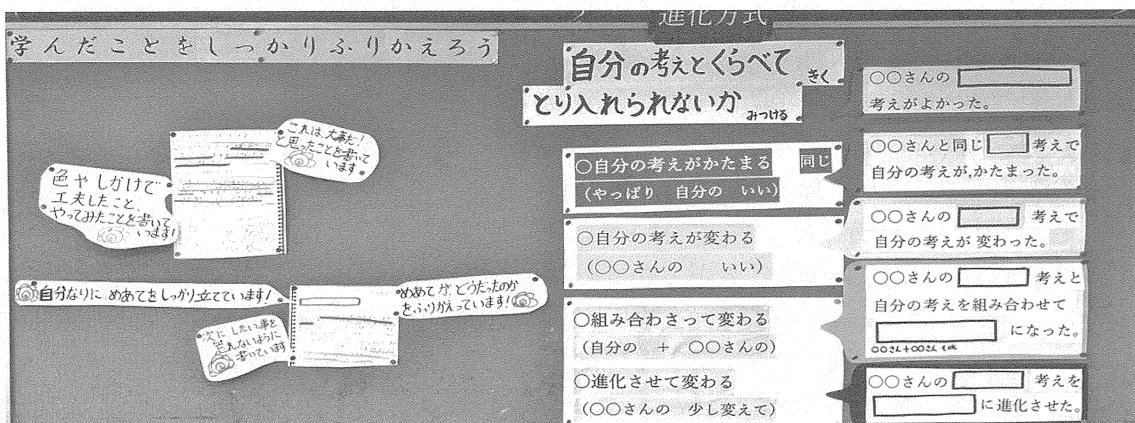 学んだことをしっかりふりかえろう
これは、大事だ！
と思ったことを書いて
います
色やしかけで
工夫したこと、
やってみたことを書いて
います！
自分なりに めあてをしっかり立てています！
めあてが、どうだったのか
をふりかえっています！
次に したい事を
忘れないように
書いています
進化方式
自分の考えとくらべて きく
とり入れられないか みつける
○自分の考えがかたまる 同じ
（やっぱり 自分の いい）
○自分の考えが変わる
（○○さんの いい）
○組み合わさって変わる
（自分の ＋ ○○さんの）
○進化させて変わる
（○○さんの 少し変えて）
○○さんの
考えがよかった。
○○さんと同じ 考えで
自分の考えが、かたまった。
○○さんの 考えで
自分の考えが 変わった。
○○さんの 考えと
自分の考えを組み合わせて
になった。
○○さん＋○○さん
○○さんの 考えを
に進化させた。